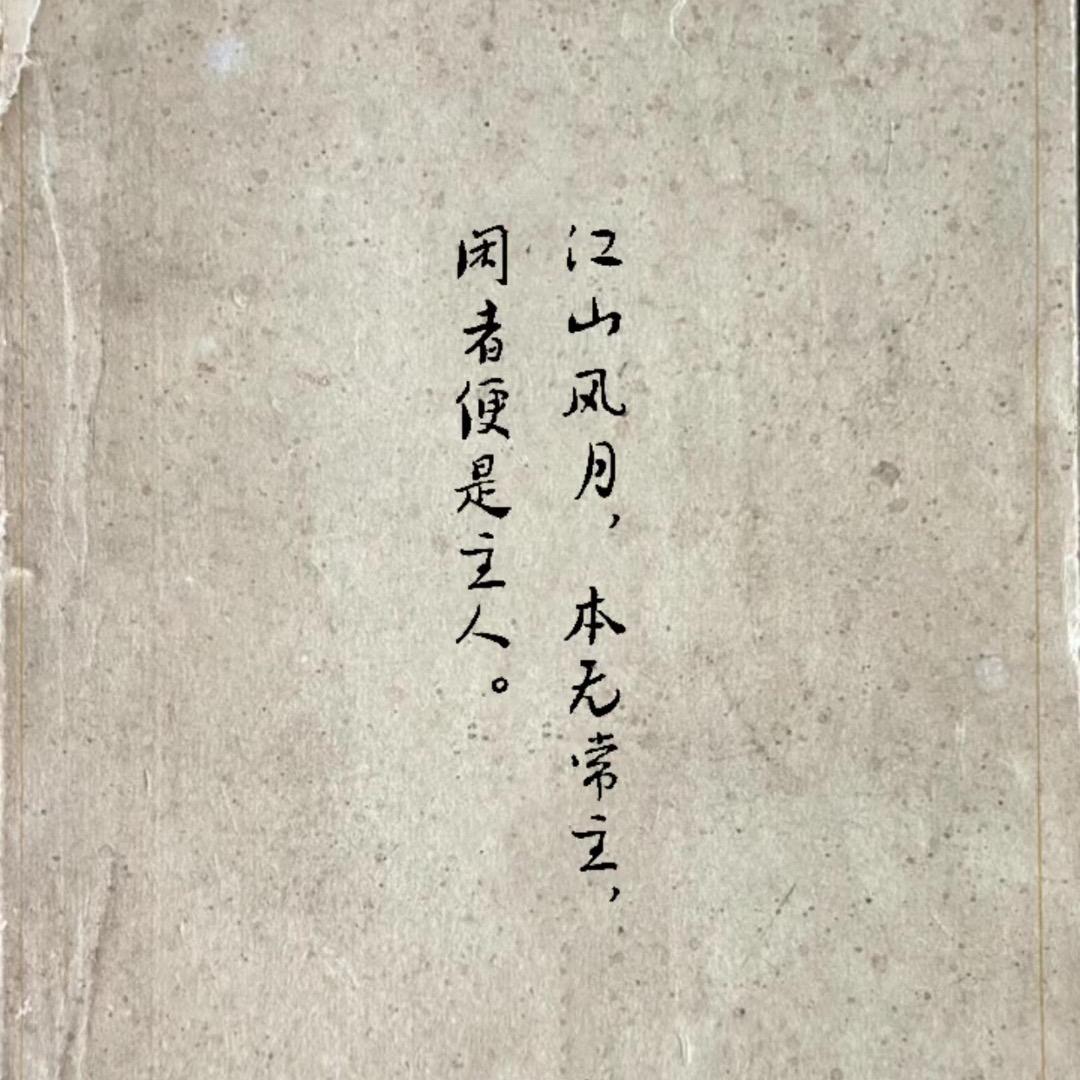 江山风月，本无常主，
闲者便是主人。